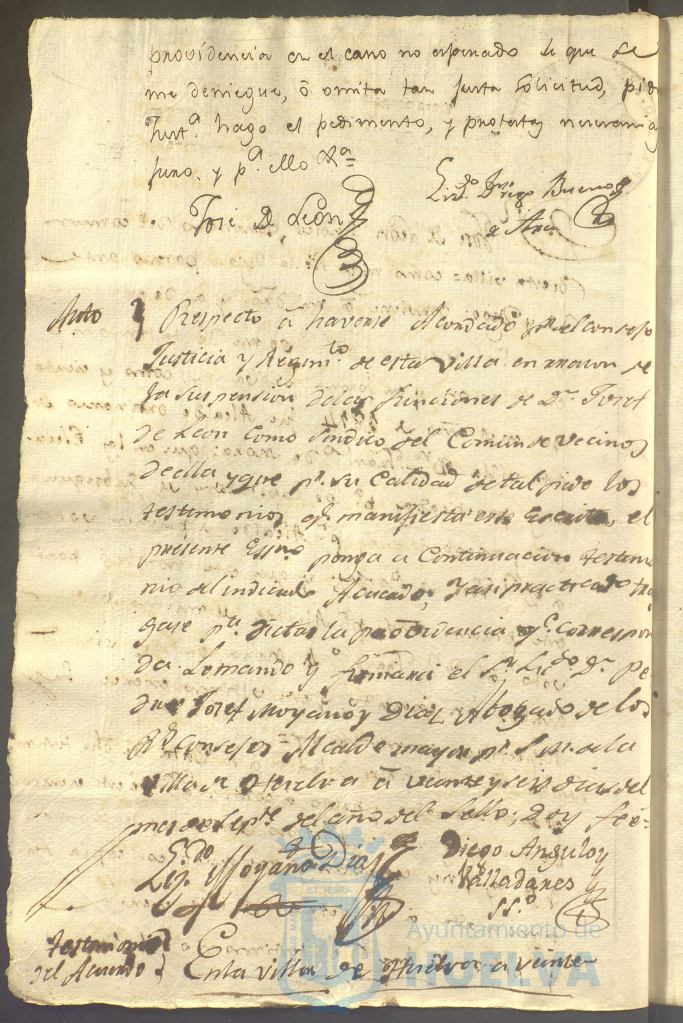 providencia en el caso no esperado de que se
me deniegue, ó omita tan justa solicitud, pido
Just.ª hago el pedimento, y protexto necesario
juro, y p.ª ello &.ª
Liz.do Diego Bueno
Josè de Leòn
Auto
Respecto à haverse Acordado p.r el consejo
Justicia y Regim.to de esta villa en razon de
la suspension delas funciones de D.n Josef
de Leon como Sindico del Comun de vecinos
de ella y que p.r su calidad de tal pide los
testimonios q.e manifiesta este Escrito, el
presente Ess.no ponga a continuacion testimo
nio del indicado Acuerdo, y asi practicado tra
igase p.a dictar la providencia q.e correspon
da. Lo mando y firmará el S.r Liz.do D.n Pe
dro Josef Moyano y Diaz Abogado de los
R.s Consejos Alcalde mayor p.r S.M. de la
villa de Huelva à veinte y seis dias del
mes de Sep.re del año del Sello; doy fee=
Liz.do Moyano Diaz
Diego Angulo y
Valladares
SS.o
Testimonio
del Acuerdo
En la villa de Huelva a veinte
Ayuntamiento de
HUELVA